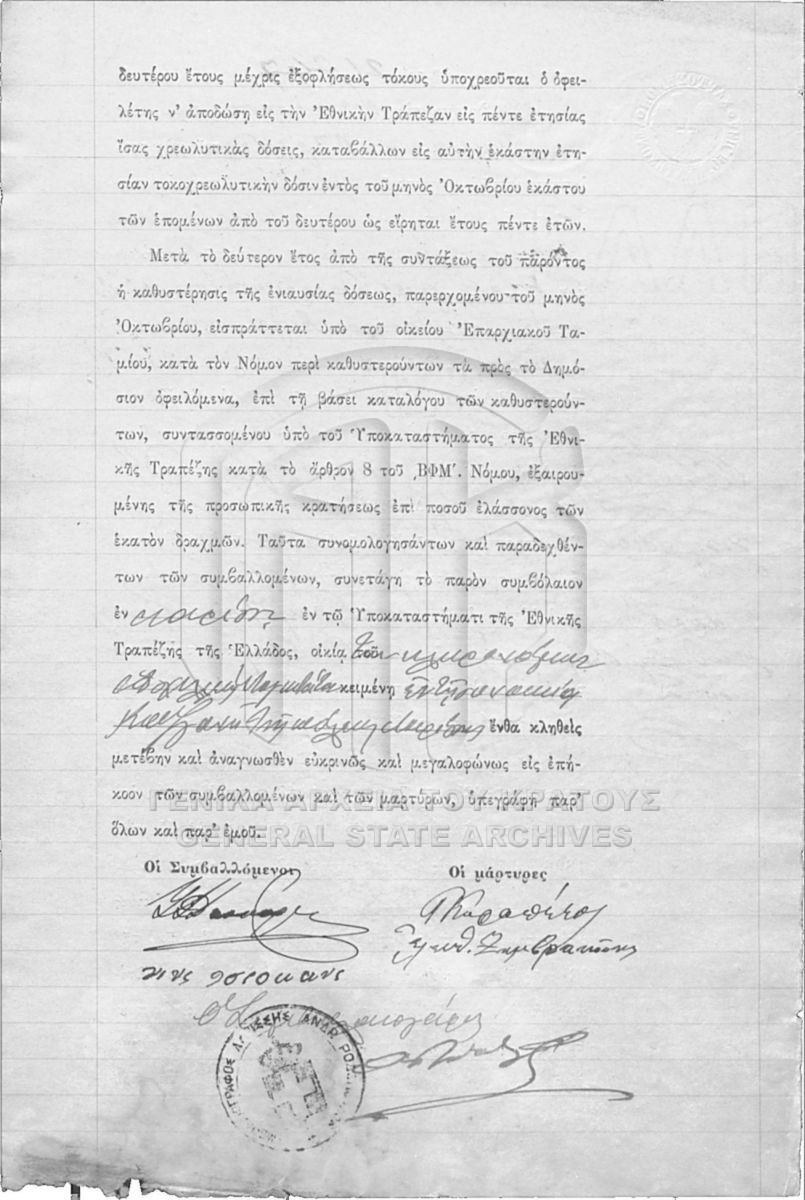 δευτέρου ἔτους μέχρις ἐξοφλήσεως τόκους ὑποχρεοῦται ὁ ὀφει-
λέτης ν' ἀποδώσῃ εἰς τὴν Ἐθνικὴν Τράπεζαν εἰς πέντε ἐτησίας
ἴσας χρεωλυτικὰς δόσεις, καταβάλλων εἰς αὐτὴν ἑκάστην ἐτη-
σίαν τοκοχρεωλυτικὴν δόσιν ἐντὸς τοῦ μηνὸς Ὀκτωβρίου ἑκάστου
τῶν ἑπομένων ἀπὸ τοῦ δευτέρου ὡς εἴρηται ἔτους πέντε ἐτῶν.
Μετὰ τὸ δεύτερον ἔτος ἀπὸ τῆς συντάξεως τοῦ παρόντος
ἡ καθυστέρησις τῆς ἐνιαυσίας δόσεως, παρερχομένου τοῦ μηνὸς
Ὀκτωβρίου, εἰσπράττεται ὑπὸ τοῦ οἰκείου Ἐπαρχιακοῦ Τα-
μίου, κατὰ τὸν Νόμον περὶ καθυστερούντων τὰ πρὸς τὸ Δημό-
σιον ὀφειλόμενα, ἐπὶ τῇ βάσει καταλόγου τῶν καθυστερούν-
των, συντασσομένου ὑπὸ τοῦ Ὑποκαταστήματος τῆς Ἐθνι-
κῆς Τραπέζης κατὰ τὸ ἄρθρον 8 τοῦ ͵ΒΦΜ΄. Νόμου, ἐξαιρου-
μένης τῆς προσωπικῆς κρατήσεως ἐπὶ ποσοῦ ἐλάσσονος τῶν
ἑκατὸν δραχμῶν. Ταῦτα συνομολογησάντων καὶ παραδεχθέν-
των τῶν συμβαλλομένων, συνετάγη τὸ παρὸν συμβόλαιον
ἐν Λαρίσῃ ἐν τῷ Ὑποκαταστήματι τῆς Ἐθνικῆς
Τραπέζης τῆς Ἑλλάδος, οἰκίᾳ τοῦ
κειμένῃ ἐν τῇ συνοικίᾳ
τῆς πόλεως Λαρίσης ἔνθα κληθεὶς
μετέβην καὶ ἀναγνωσθὲν εὐκρινῶς καὶ μεγαλοφώνως εἰς ἐπή-
κοον τῶν συμβαλλομένων καὶ τῶν μαρτύρων, ὑπεγράφη παρ'
ὅλων καὶ παρ' ἐμοῦ.
ΓΕΝΙΚΑ ΑΡΧΕΙΑ ΤΟΥ ΚΡΑΤΟΥΣ
GENERAL STATE ARCHIVES
Οἱ Συμβαλλόμενοι
Οἱ μάρτυρες